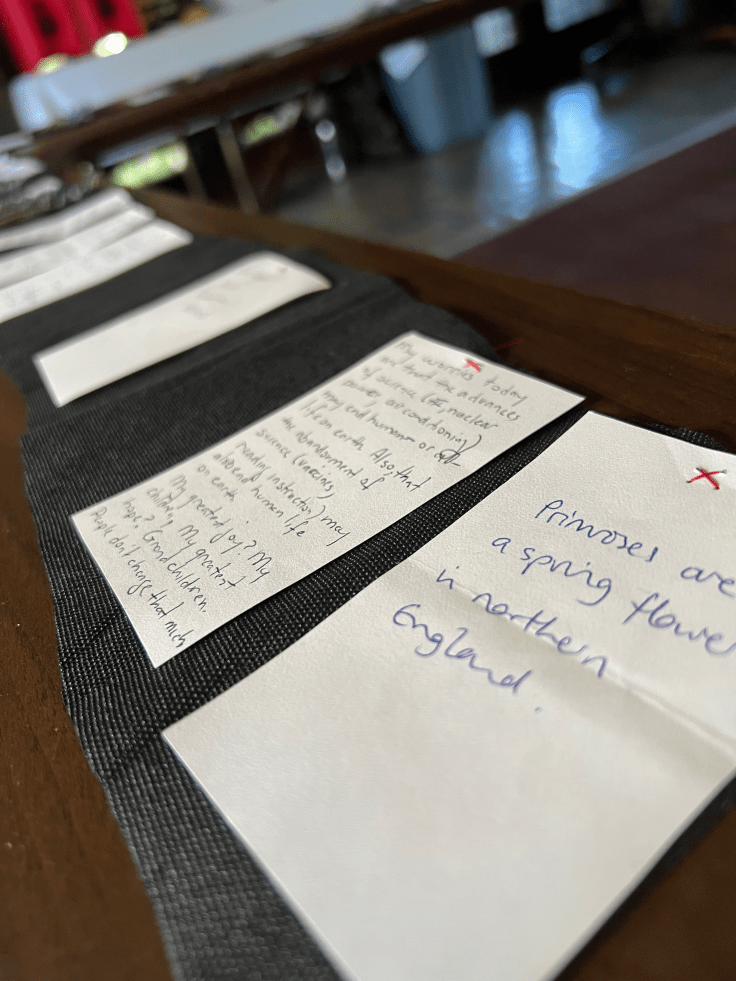 My worries today
are that the advances
of science (, nuclear
power, air conditioning)
may end human or all
life on earth. Also, that
the abandonment of
science (vaccines,
reading instruction) may
also end human life
on earth.
My greatest joy? My
children. My greatest
hope? Grandchildren.
People don't change that much
Primroses are
a spring flower
in northern
England.